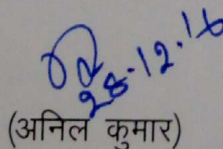 28.12.16
(अनिल कुमार)